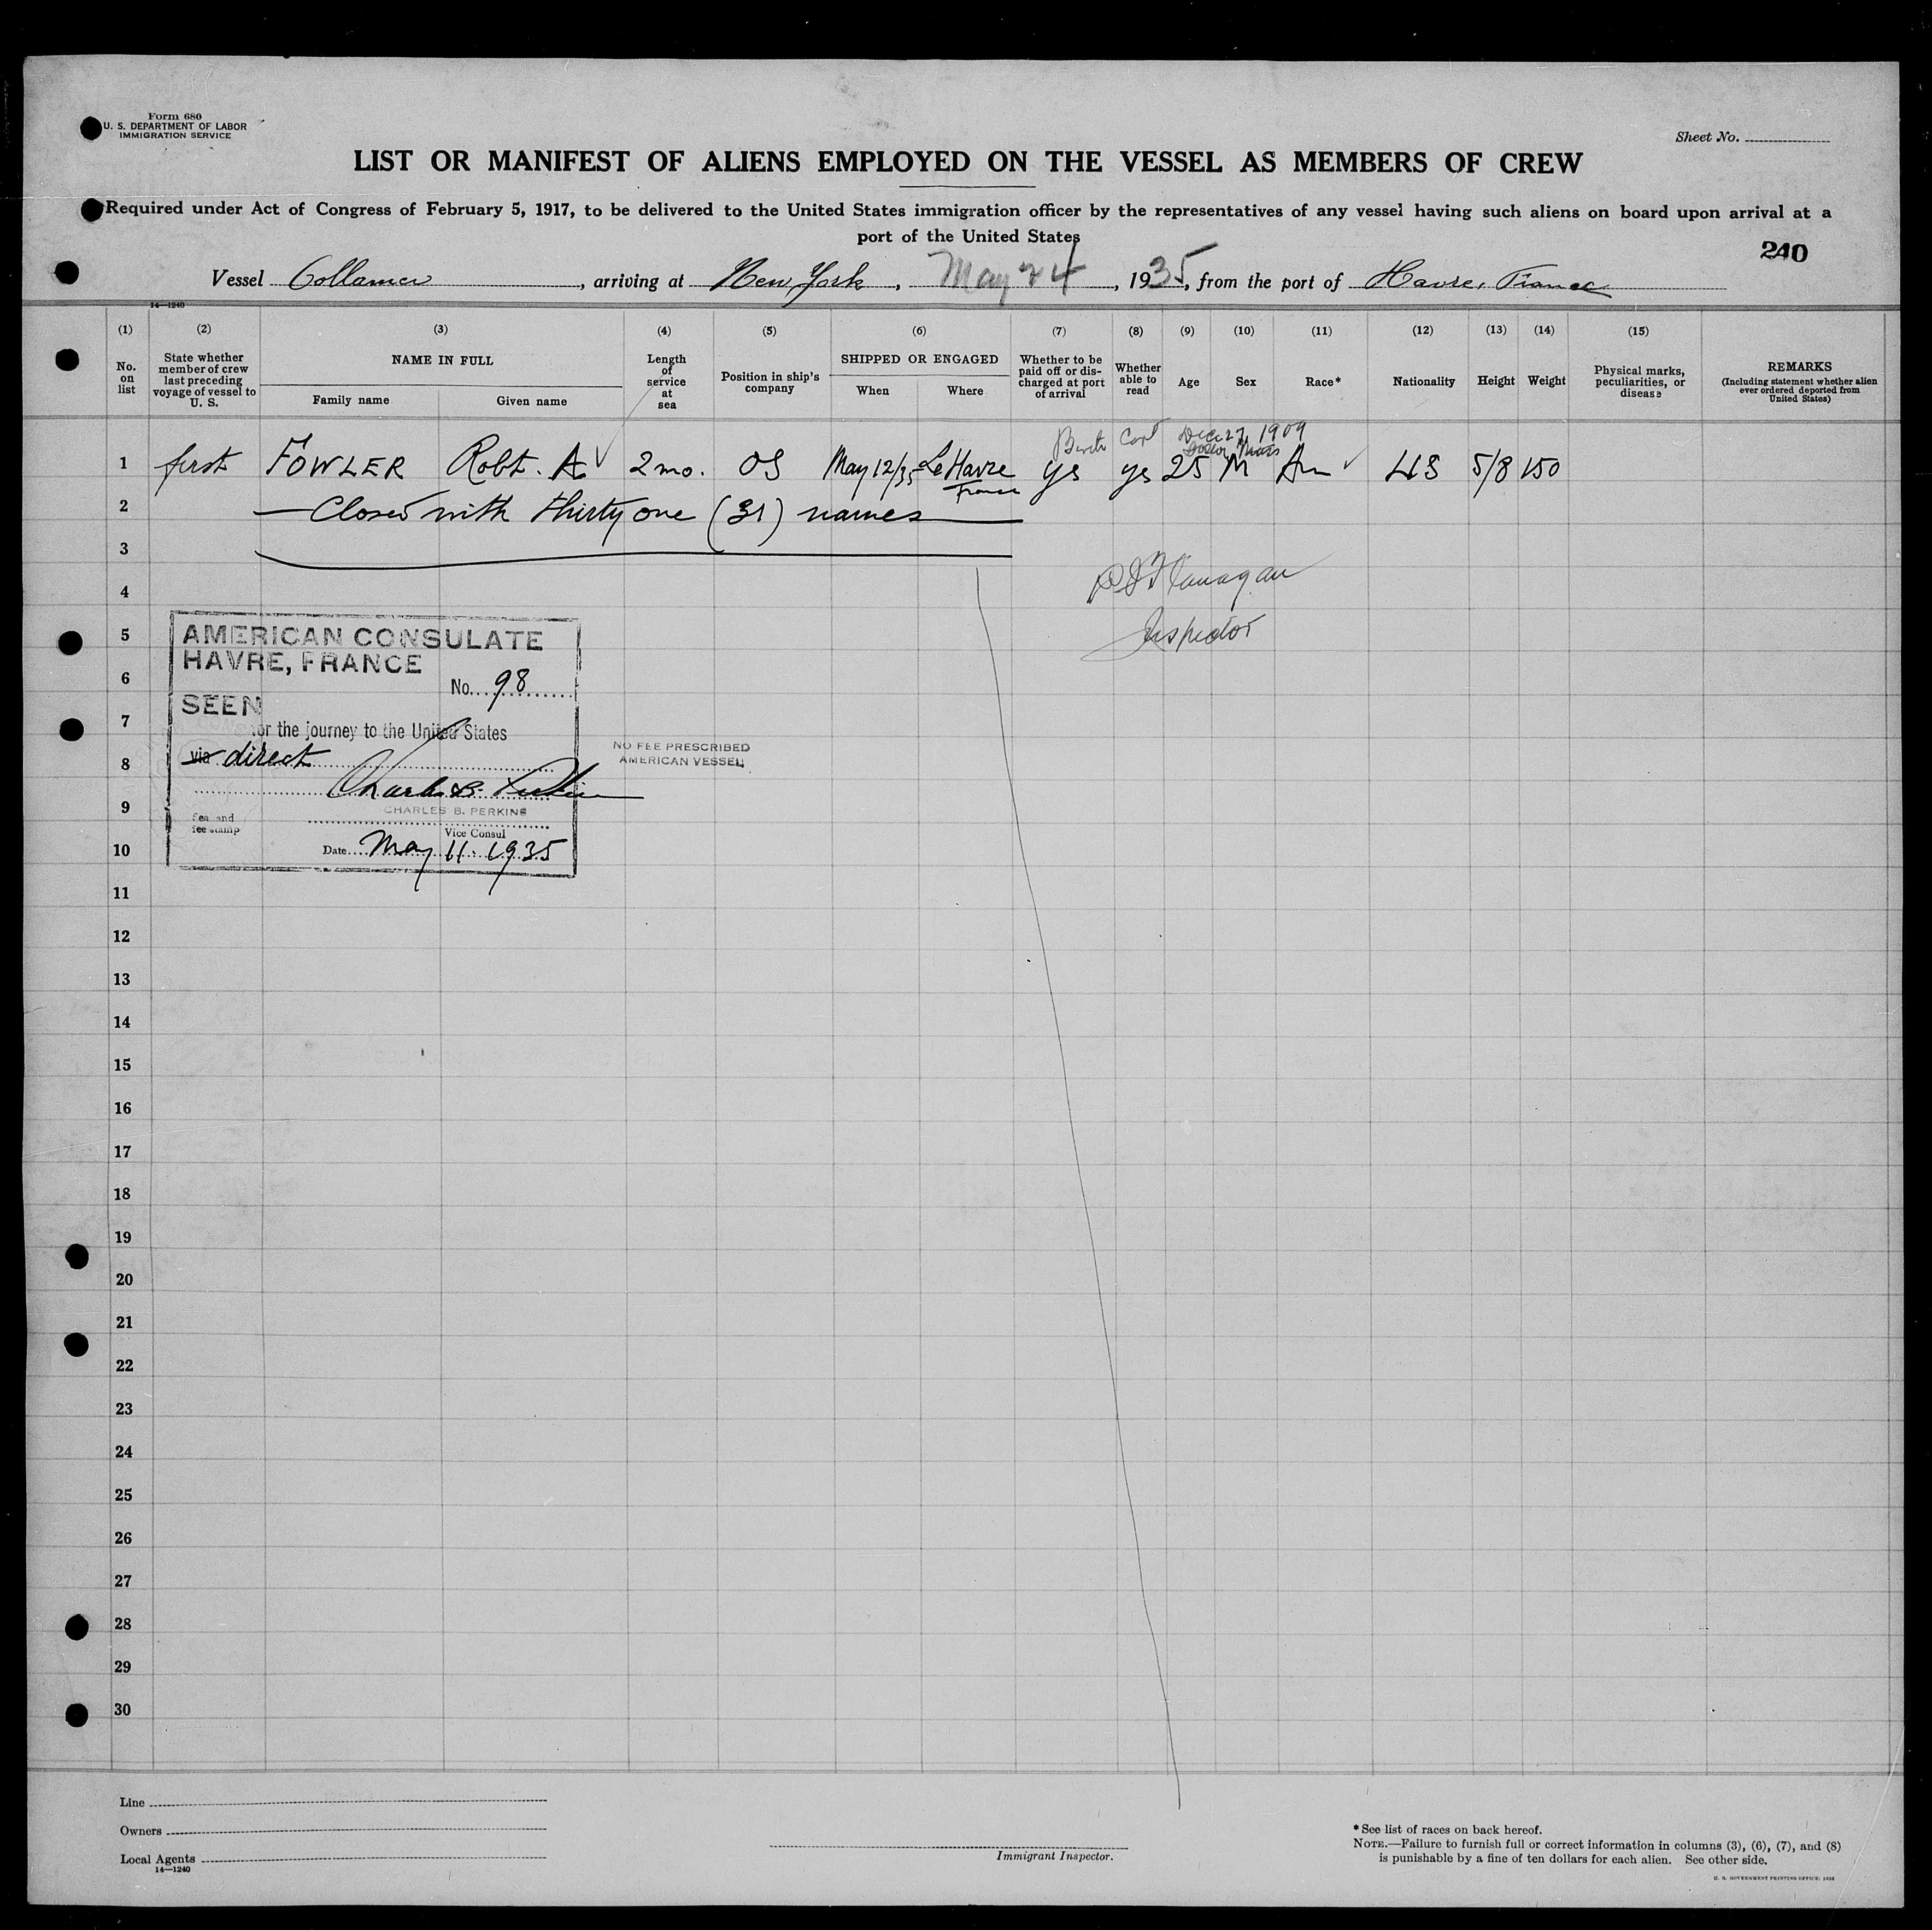 Form 680
U. S. DEPARTMENT OF LABOR
IMMIGRATION SERVICE
Sheet No.
LIST OR MANIFEST OF ALIENS EMPLOYED ON THE VESSEL AS MEMBERS OF CREW
Required under Act of Congress of February 5, 1917, to be delivered to the United States immigration officer by the representatives of any vessel having such aliens on board upon arrival at a
port of the United States
240
Vessel Collamer, arriving at New York, May 24, 1935, from the port of Havre, France
14—1240
(1) (2) (3) (4) (5) (6) (7) (8) (9) (10) (11) (12) (13) (14) (15)
No. on list
State whether member of crew last preceding voyage of vessel to U. S.
NAME IN FULL
Family name Given name
Length of service at sea
Position in ship's company
SHIPPED OR ENGAGED
When Where
Whether to be paid off or discharged at port of arrival
Whether able to read
Age
Sex
Race*
Nationality
Height
Weight
Physical marks, peculiarities, or disease
REMARKS
(Including statement whether alien ever ordered deported from United States)
Birth Cert Dec 27, 1909
Boston Mass
1 first FOWLER Robt. A 2 mo. OS May 12/35 Le Havre France yes yes 25 M Am US 5/8 150
2 Closed with thirty one (31) names
3
4
Flanagan
5
Inspector
6
7
8
9
10
11
12
13
14
15
16
17
18
19
20
21
22
23
24
25
26
27
28
29
30
AMERICAN CONSULATE
HAVRE, FRANCE
No. 98
SEEN
for the journey to the United States
via direct
Charles B. Perkins
CHARLES B. PERKINS
Vice Consul
Seal and
fee stamp
Date May 11. 1935
NO FEE PRESCRIBED
AMERICAN VESSEL
Line
Owners
Local Agents
14—1240
Immigrant Inspector.
* See list of races on back hereof.
NOTE.—Failure to furnish full or correct information in columns (3), (6), (7), and (8)
is punishable by a fine of ten dollars for each alien. See other side.